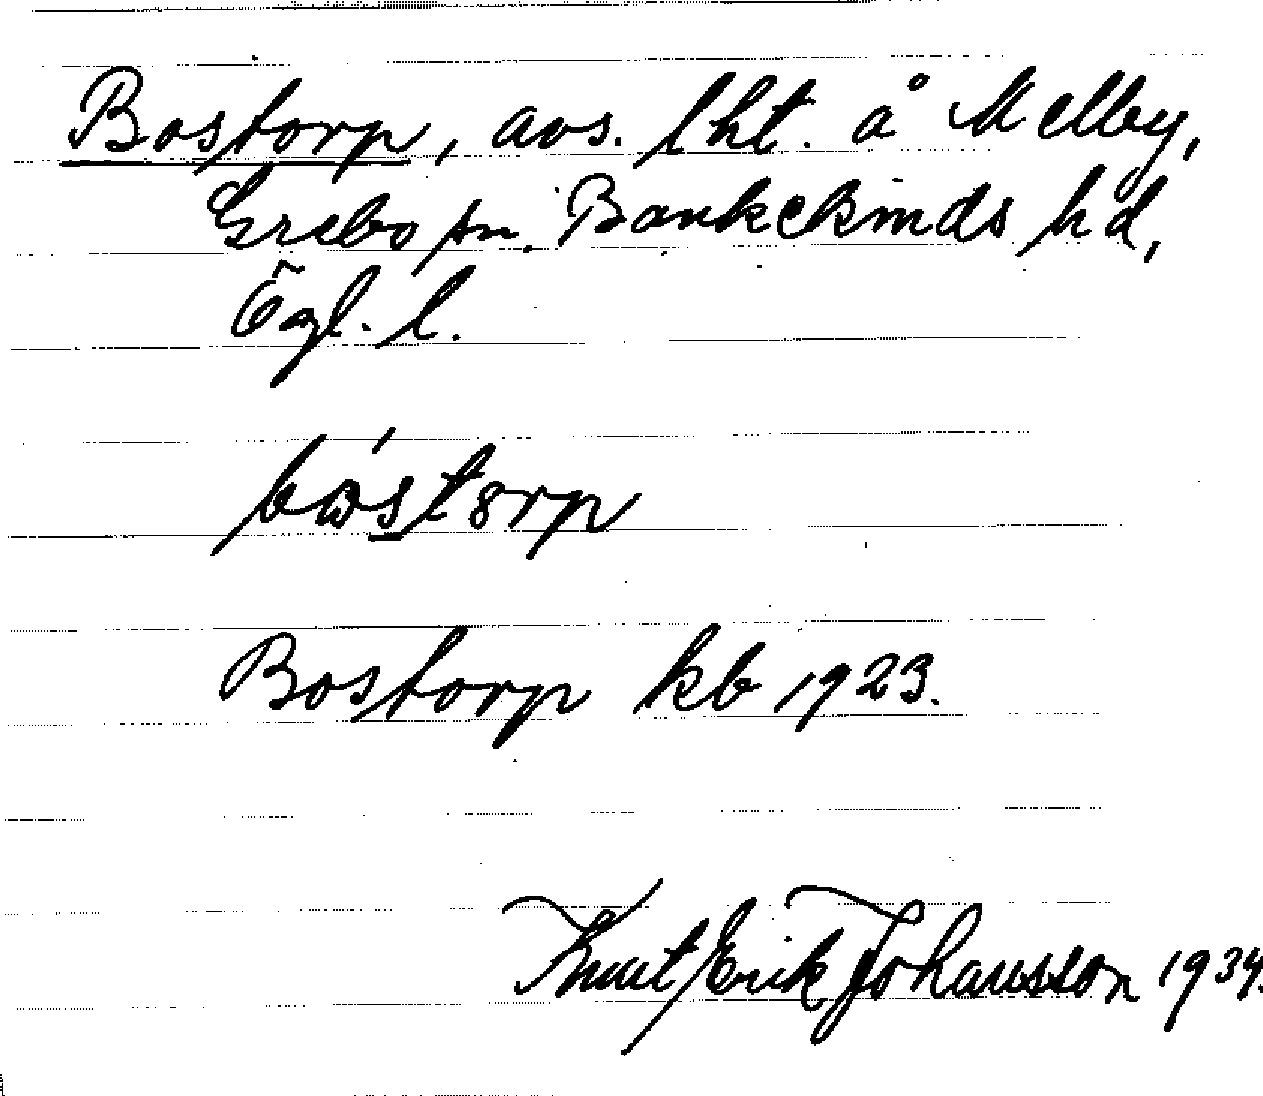 Bostorp, avs. lht. å Melby,
Grebo sn. Bankekinds hd,
Ögl. l.
bωstorp
Bostorp kb 1923.
Knut Erik Johansson 1934.